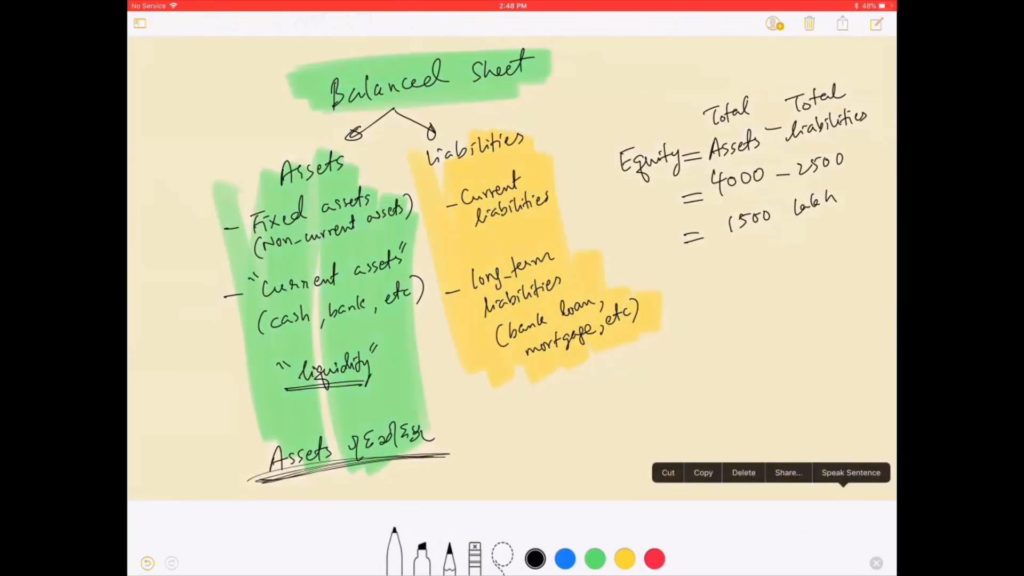 No Service
2:48 PM
48%
Balanced Sheet
Assets
- Fixed assets
(Non-current assets)
- "Current assets"
(cash, bank, etc)
"liquidity"
Assets
Liabilities
- Current
liabilities
- long-term
liabilities
(bank loan,
mortgage, etc)
Total Total
Equity = Assets - liabilities
= 4000 - 2500
= 1500 lakh
Cut Copy Delete Share... Speak Sentence